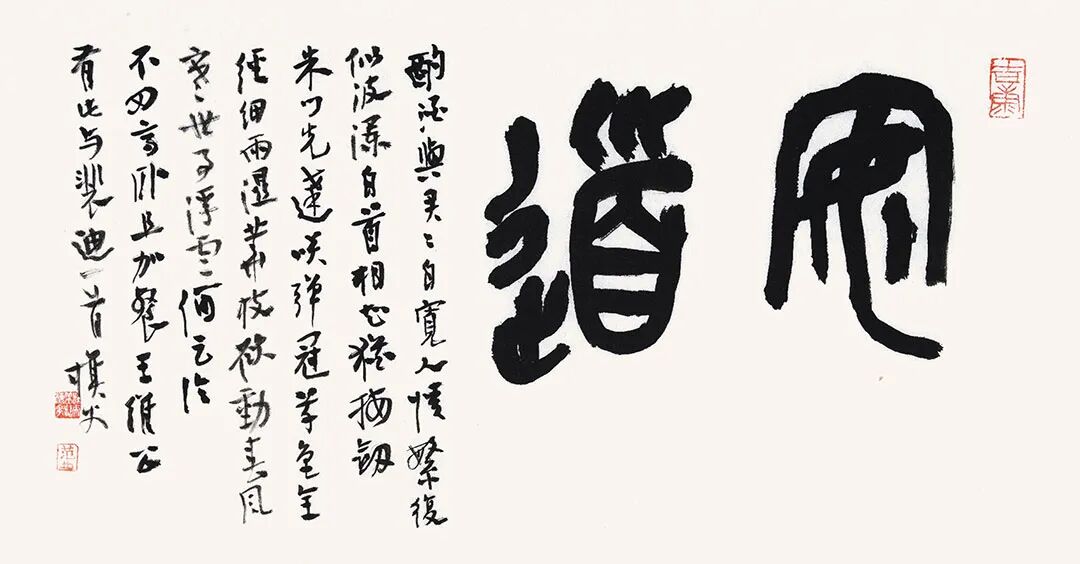 安道
酌酒與君々自寬人情繁復
似波瀾白首相知猶按劔
朱门先達咲彈冠草色全
經細雨濕花枝欲動春風
寒世事浮雲何足论
不如高卧且加餐王維公
有此与裴迪一首